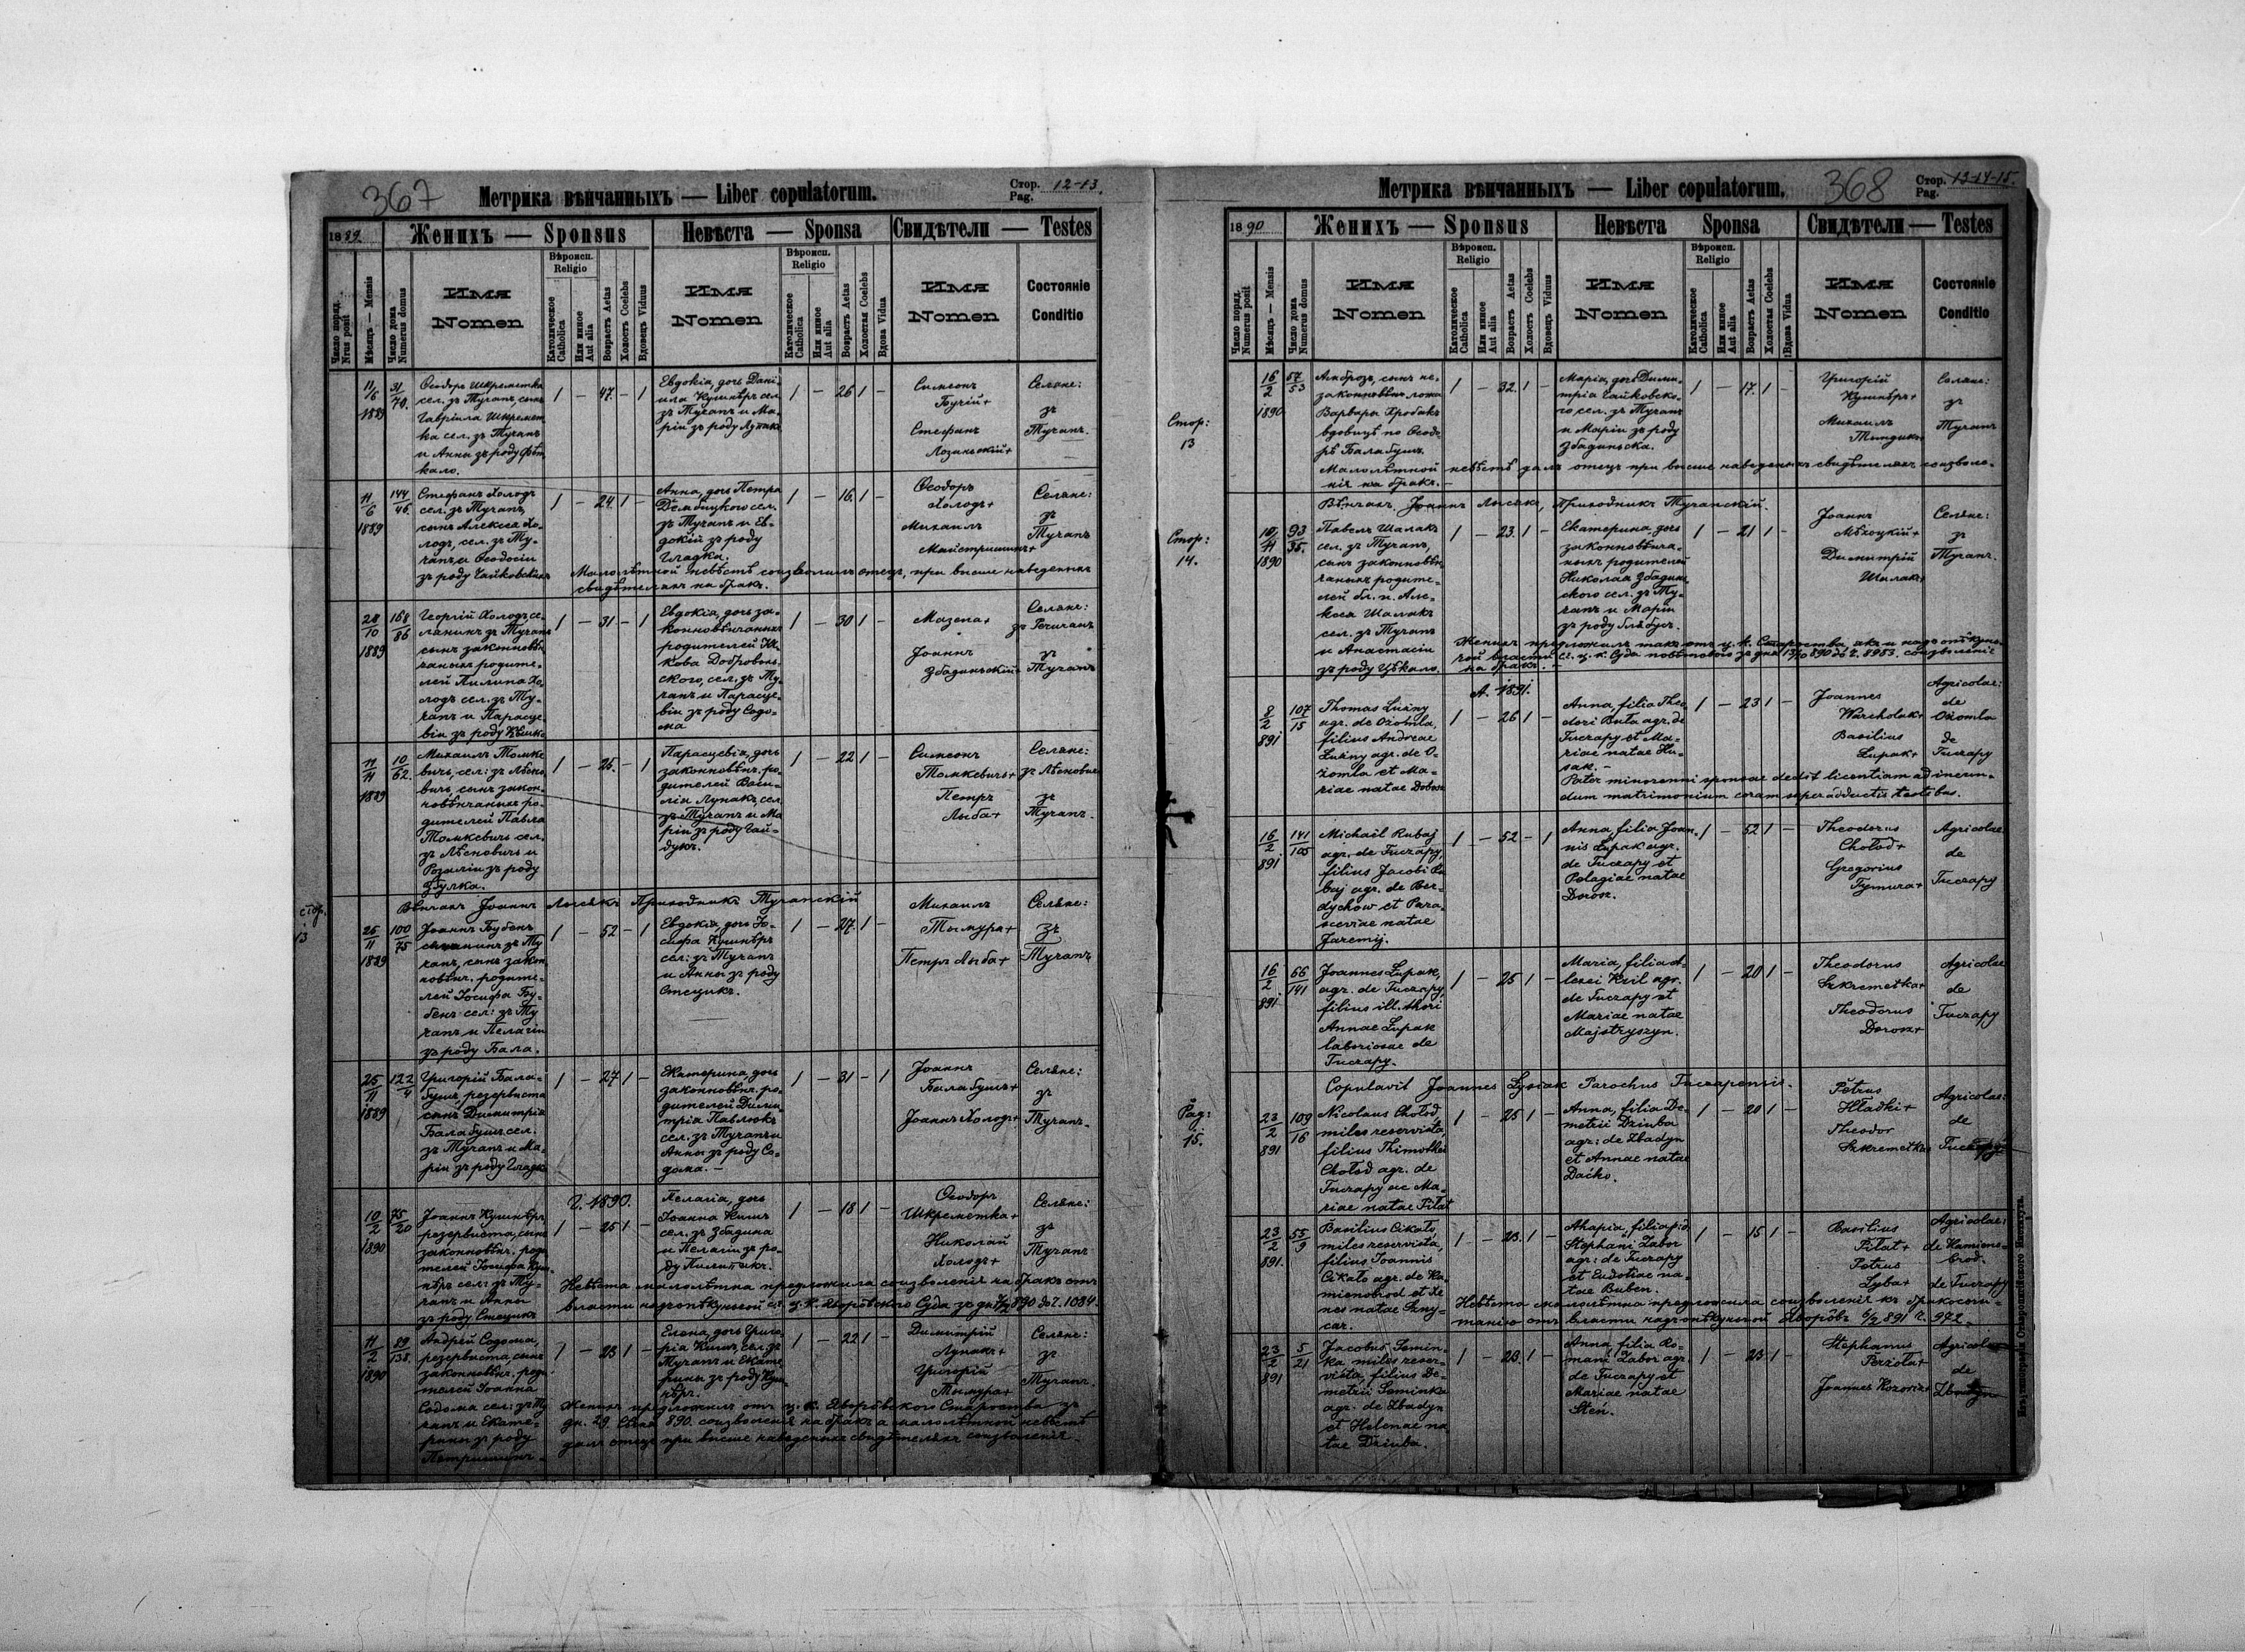 367
Метрика вѣнчанныхъ — Liber copulatorum.
Стор. 12-13.
Pag.
1889
Женихъ — Sponsus
Невѣста — Sponsa
Свидѣтели — Testes
Число поряд. Nrus posit
Мѣсяцъ — Mensis
Число дома Numerus domus
Имя
Nomen
Вѣроисп.
Religio
Католическое Catholica
Или иное Aut alia
Возрастъ Aetas
Холостъ Coelebs
Вдовецъ Viduus
Имя
Nomen
Вѣроисп.
Religio
Католическое Catholica
Или иное Aut alia
Возрастъ Aetas
Холостая Coelebs
Вдова Vidua
Имя
Nomen
Состояніе
Conditio
11/6 1889
31/70.
Ѳеодоръ Шкреметка
сел. зъ Тучапъ, сынъ
Гавріила Шкремет-
ка сел. зъ Тучапъ
и Анна зъ роду
1 — 47. — 1
Евдокія, дочь Дані-
ила Кушнѣръ сел.
зъ Тучапъ и Ма-
ріи зъ роду Лупакъ
1 — 26 1 —
Симеонъ
Бучій+
Стефанъ
Лозинській+
Селяне:
зъ
Тучапъ.
11/6 1889
144/46.
Стефанъ Холодъ
сел. зъ Тучапъ,
сынъ Алексея Хо-
лодъ, сел. зъ Ту-
чапъ и Ѳеодосіи
зъ роду Чайковська
1 — 24. 1 —
Анна, дочь Петра
сел.
зъ Тучапъ и Ев-
докіи зъ роду
Гладка.
1 — 16. 1 —
Ѳеодоръ
Холодъ+
Михаилъ
Майстришинъ+
Селяне:
зъ
Тучапъ
Малолѣтной невѣстѣ соизволилъ отецъ, при висше наведеныхъ
свидѣтеляхъ на бракъ.
28/10 1889
168/86
Георгій Холодъ се-
лянинъ зъ Тучапъ
сынъ законновѣн-
чаныхъ родите-
лей Пилипа Хо-
лодъ сел. зъ Ту-
чапъ и Парасце-
віи зъ роду
1 — 31 — 1
Евдокія, дочь за-
конновѣнчанныхъ
родителей Яа-
кова Добровель-
ского, сел. зъ Ту-
чапъ и Парасце-
віи зъ роду Содо-
ма
1 — 30 1 —
Мазепа+
Іоаннъ
Збадинській+
Селяне:
зъ Речичанъ
зъ
Тучапъ
11/11 1889
10/62.
Михаилъ Томке-
вичъ, сел: зъ Лѣсно-
вичъ, сынъ закон-
новѣнчаныхъ ро-
дителей Павла
Томкевичъ сел.
зъ Лѣсновичъ и
Розаліи зъ роду
Фулка.
1 — 26. — 1
Парасцевія, дочь
законновѣнч. ро-
дителей Васи-
лія Лупакъ, сел.
зъ Тучапъ и Ма-
ріи зъ роду Гай-
дукъ.
1 — 22 1 —
Симеонъ
Томкевичъ+
Петръ
Лыба+
Селяне:
зъ Лѣсновичъ
зъ
Тучапъ.
стор. 13
Вѣнчалъ Іоаннъ Лысякъ Приходникъ Тучапскій
25/11 1889
100/75
Іоаннъ Бубенъ
селянинъ зъ Ту-
чапъ, сынъ закон-
новѣнч. родите-
лей Іосифа Бу-
бенъ сел: зъ Ту-
чапъ и Пелагіи
зъ роду Бала.
1 — 52 — 1
Евдокія, дочь Іо-
сифа Кушнѣръ
сел: зъ Тучапъ
и Анны зъ роду
Стецикъ.
1 — 27. 1 —
Михаилъ
Тымура+
Петръ Лыба+
Селяне:
зъ
Тучапъ
25/11 1889
122/4
Григорій Бала-
бушъ, резервиста
сынъ Димитрія
Балабушъ сел.
зъ Тучапъ и Ма-
ріи зъ роду Гладка
1 — 27 1 —
Екатерина, дочь
законновѣнч. ро-
дителей Дими-
трія Павлюкъ
сел. зъ Тучапъ и
Анны зъ роду Со-
дома. —
1 — 31 — 1
Іоаннъ
Балабушъ+
Іоаннъ Холодъ+
Селяне:
зъ
Тучапъ.
Г. 1890.
10/2 1890
75/20
Іоаннъ Кушнѣръ
резервиста, сынъ
законновѣнч. роди-
телей Іосифа Куш-
нѣръ сел: зъ Ту-
чапъ и Анны
зъ роду Стецикъ
1 — 25 1 —
Пелагія, дочь
Іоанна Кишъ
сел. зъ Збадина
и Пелагіи зъ ро-
ду
1 — 18 1 —
Ѳеодоръ
Шкреметка+
Николай
Холодъ+
Селяне:
зъ
Тучапъ
Невѣста малолѣтна предложила соизволеніе на бракъ отъ
власти надопѣкунчой сг. ц. к. Яворівского Суда зъ дн. 890 до Ч. 1084.
11/2 1890
89/138.
Андрей Содома,
резервиста, сынъ
законновѣнч. роди-
телей Іоанна
Содома сел: зъ Ту-
чапъ и Екате-
рины зъ роду
Петришинъ
1 — 23 1 —
Елена, дочь Григо-
рія Кишъ, сел: зъ
Тучапъ и Екате-
рины зъ роду Куш-
нѣръ.
1 — 22 1 —
Димитрій
Лупакъ+
Григорій
Тымура+
Селяне:
зъ
Тучапъ.
Женихъ предложилъ отъ ц. к. Яворівского Староства зъ
дн. 29. Січня 890. соизволеніе на бракъ а малолѣтной невѣстѣ
далъ отецъ при висше наведеныхъ свидѣтеляхъ соизволеніе.
368
Метрика вѣнчанныхъ — Liber copulatorum.
Стор. 13-14-15.
Pag.
1890
Женихъ — Sponsus
Невѣста Sponsa
Свидѣтели — Testes
Число поряд. Numerus posit
Мѣсяцъ — Mensis
Число дома Numerus domus
Имя
Nomen
Вѣроисп.
Religio
Католическое Catholica
Или иное Aut alia
Возрастъ Aetas
Холостъ Coelebs
Вдовецъ Viduus
Имя
Nomen
Вѣроисп.
Religio
Католическое Catholica
Или иное Aut alia
Возрастъ Aetas
Холостая Coelebs
Вдова Vidua
Имя
Nomen
Состояніе
Conditio
Стор: 13
16/2 1890
57/53
Амброзъ, сынъ не-
законновѣнч. ложа
Варвара Хробакъ
вдовицѣ по Ѳеодо-
рѣ Балабушъ.
1 — 32. 1 —
Марія, дочь Дими-
трія Чайковско-
го сел. зъ Тучапъ
и Маріи зъ роду
Збадинська.
1 — 17. 1 —
Григорій
Кушнѣръ+
Михаилъ
Тиндикъ+
Селяне:
зъ
Тучапъ
Малолѣтной невѣстѣ далъ отецъ при висше наведеныхъ свидѣтеляхъ соизволе-
ніе на бракъ. —
Вѣнчалъ, Іоаннъ Лысякъ, Приходникъ Тучапскій.
Стор: 14.
10/11 1890
93/35.
Павелъ Шалакъ
сел. зъ Тучапъ,
сынъ законновѣн-
чаныхъ родите-
лей бл. п. Але-
ксея Шалакъ
сел. зъ Тучапъ
и Анастасіи
зъ роду Цѣкало.
1 — 23. 1 —
Екатерина, дочь
законновѣнча-
ныхъ родителей
Николая Збадин-
ского сел. зъ Ту-
чапъ и Маріи
зъ роду
1 — 21 1 —
Іоаннъ
Мѣхоцкій+
Димитрій
Шалакъ+
Селяне:
зъ
Тучапъ.
Женихъ предложилъ такъ отъ ц. к. Староства, якъ и надъопѣкун-
чой власти сг. ц. к. Суда повѣтового зъ дня 890 до Ч. 8953. соизволеніе
на бракъ. —
A. 1891.
8/2 891
107/15
Thomas Luźny
agr. de Ożomla,
filius Andreae
Luźny agr. de O-
żomla et Ma-
riae natae Dobosz
1 — 26 1 —
Anna, filia Theo-
dori Buła agr. de
Tuczapy et Ma-
riae natae Hu-
sak. —
1 — 23 1 —
Joannes
Warcholak+
Basilius
Łupak+
Agricolae:
de
Ożomla
de
Tuczapy
Pater minorenni sponsae dedit licentiam ad ineun-
dum matrimonium coram superadductis testibus.
16/2 891
141/105
Michaël Rubaj
agr. de Tuczapy,
filius Jacobi Ru-
baj agr. de Ber-
dychow et Para-
sceviae natae
Jaremij.
1 — 52 — 1
Anna, filia Joan-
nis Łupak agr.
de Tuczapy et
Pelagiae natae
Dorosz.
1 — 52 1 —
Theodorus
Chołod+
Gregorius
Tymura+
Agricolae
de
Tuczapy
16/2 891
66/141
Joannes Łupak,
agr. de Tuczapy,
filius ill. thori
Annae Łupak
laboriosae de
Tuczapy.
1 — 25 1 —
Maria, filia A-
lexei Kril agr.
de Tuczapy et
Mariae natae
Majstryszyn.
1 — 20 1 —
Theodorus
Szkremetka+
Theodorus
Dorosz+
Agricolae
de
Tuczapy
Copulavit Joannes Łysiak Parochus Tuczapensis.
Pag: 15.
23/2 891
109/16
Nicolaus Chołod,
miles reservista,
filius Thimothei
Chołod agr. de
Tuczapy ac Ma-
riae natae Piłat
1 — 25 1 —
Anna, filia De-
metrii Dziuba
agr: de Zbadyn
et Annae natae
Daćko.
1 — 20 1 —
Petrus
Hładki+
Theodor
Szkremetka
Agricolae:
de
Tuczapy
23/2 891.
55/9
Basilius Cikało,
miles reservista,
filius Joannis
Cikało agr. de Ka-
mienobrod et Xe-
nes natae Szny-
car.
1 — 23. 1 —
Ahapia, filia pid
Stephani Zabor
agr: de Tuczapy
et Eudotiae na-
tae Buben.
1 — 15 1 —
Basilius
Piłat+
Petrus
Łyba+
Agricolae:
de Kamieno-
brod.
de Tuczapy
Невѣста малолѣтна предложила соизволеніе къ бракосоче-
танію отъ власти надъопѣкунчой Яворôвъ 6/2 891 ч. 972.
23/2 891
5/21
Jacobus Semin-
ka miles reser-
vista, filius De-
metrii Seminka
agr. de Zbadyn
et Helenae na-
tae Dziuba.
1 — 23. 1 —
Anna, filia Ro-
mani Zabor agr.
de Tuczapy et
Mariae natae
Steń.
1 — 23 1 —
Stephanus
Perżoła+
Joannes Kozoriz+
Agricolae
de
Zbadyn
Изъ типографіи Ставропигійского Института.